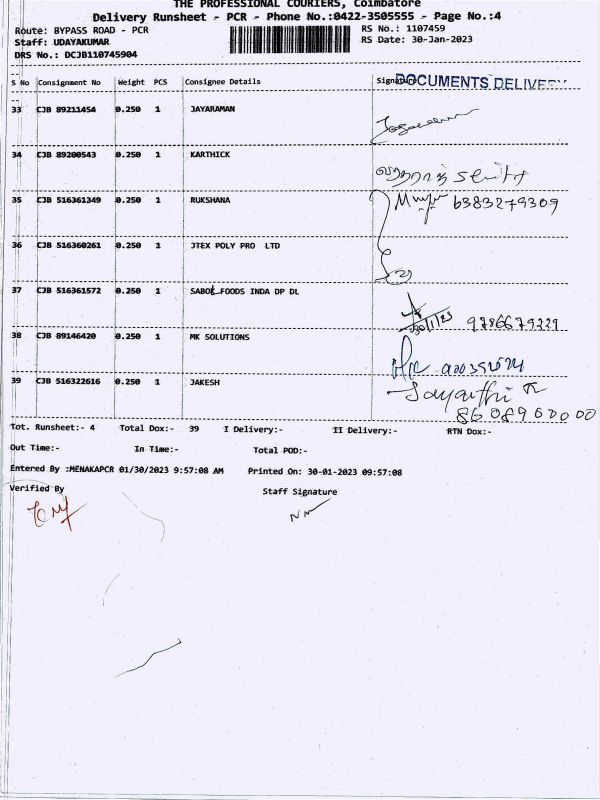 THE PROFESSIONAL COURIERS, Coimbatore
Delivery Runsheet - PCR - Phone No.:0422-3505555 - Page No.:4
Route: BYPASS ROAD - PCR
RS No.: 1107459
Staff: UDAYAKUMAR
RS Date: 30-Jan-2023
DRS No.: DCJB110745904
S No Consignment No Weight PCS Consignee Details Signature DOCUMENTS DELIVERY
33 CJB 89211454 0.250 1 JAYARAMAN
34 CJB 89200543 0.250 1 KARTHICK
35 CJB 516361349 0.250 1 RUKSHANA 6383279309
36 CJB 516360261 0.250 1 JTEX POLY PRO LTD
37 CJB 516361572 0.250 1 SABOL FOODS INDA DP DL
30/1/23 9786679229
38 CJB 89146420 0.250 1 MK SOLUTIONS
39 CJB 516322616 0.250 1 JAKESH Jayanthi
8608960000
Tot. Runsheet:- 4 Total Dox:- 39 I Delivery:- II Delivery:- RTN Dox:-
Out Time:- In Time:- Total POD:-
Entered By :MENAKAPCR 01/30/2023 9:57:08 AM Printed On: 30-01-2023 09:57:08
Verified By Staff Signature